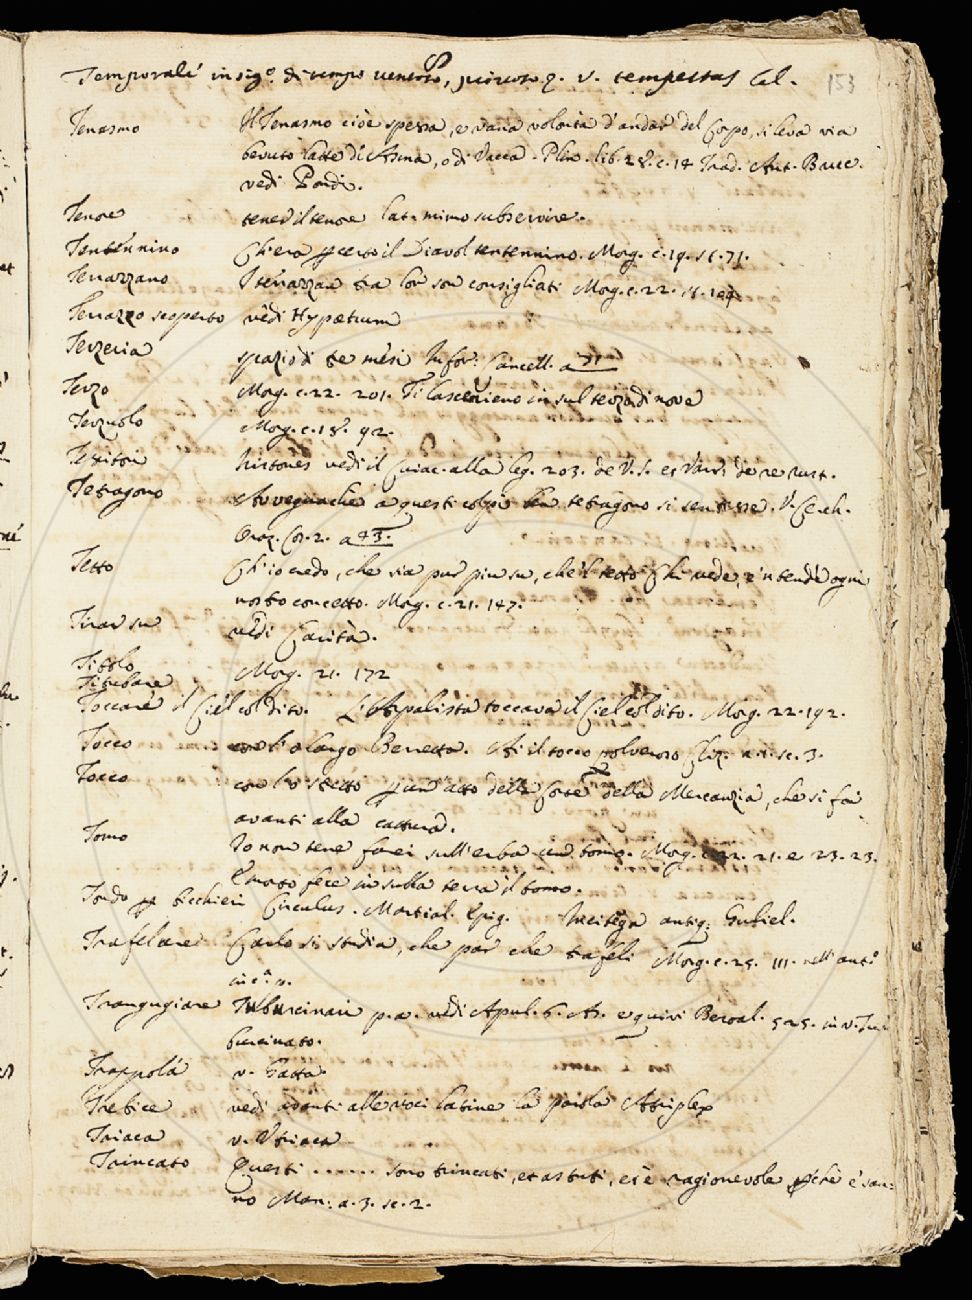 Temporale in sig.o di tempo ventoso, piovoso. v. tempestas Cal. 153
Tenasmo Il Tenasmo cioè spessa, e vana volontà d'andar del Corpo, si leva via
bevuto latte d'Asina, o di Vacca. Plin. lib. 28. c. 14 Trad. Ant. Bruc.
vedi Pondi.
Tenore tener il tenore lat. mimo subservire.
Tentennino Ch'era certo il Diavol tentennino. Morg. c. 19. st. 71.
Terrazzano I terrazzan tra lor son consigliati Morg. c. 22. st.
Terrazzo scoperto vedi Hypætrum
Terzeria spazio di tre mesi Infor. Cancell. a 71
Terzo Morg. c. 22. 201. Ti lascerieno in sul terzo di nove
Terzuolo Morg. c. 18. 92.
Tessitori histones vedi il Cuiac. alla leg. 203. de V. S. et Varr. de re rust.
Tetragono Avvegnachè a questi colpi ben tetragono si sentisse. V. Ce. ch.
Oraz. Cr. 2. a 43.
Tetto Ch'io credo, che sia pur piu su, che'l tetto Chi vede, e'ntende ogni
nostro concetto. Morg. c. 21. 147.
Tirar su vedi Carità.
Titolo Morg. 21. 172
Titubare
Toccare il Ciel col dito. L'Arpalista toccava il Ciel col dito. Morg. 22. 192.
Tocco con l'o largo Berretta. Al il tocco polveroso a. 1. sc. 3.
Tocco con l'o stretto un atto della Corte della Mercanzia, che si fa
avanti alla cattura.
Tomo Io non tene farei sull'erba un tomo. Morg. 22. 21. e 23. 23.
E morto fece in sulla terra il tomo.
Tondo bicchieri Circulus. Martial. Epig. Incitega antiq. Guliel.
Trafelare Carlo si studia, che par che trafeli Morg. c. 25. 111. nell'ant.o
Trangugiare Tuburcinari p. a. vedi Apul. 6. As. e quivi Beroal. 525. in v. Tu-
burcinato.
Trappola v. Gatta.
Trebice vedi avanti alle voci latine la parola Atriplex
Triaca v. Utriaca
Trincato Questi ...... sono trincati, et astuti, et è ragionevole perchè e' san-
no Man: a. 3. sc. 2.